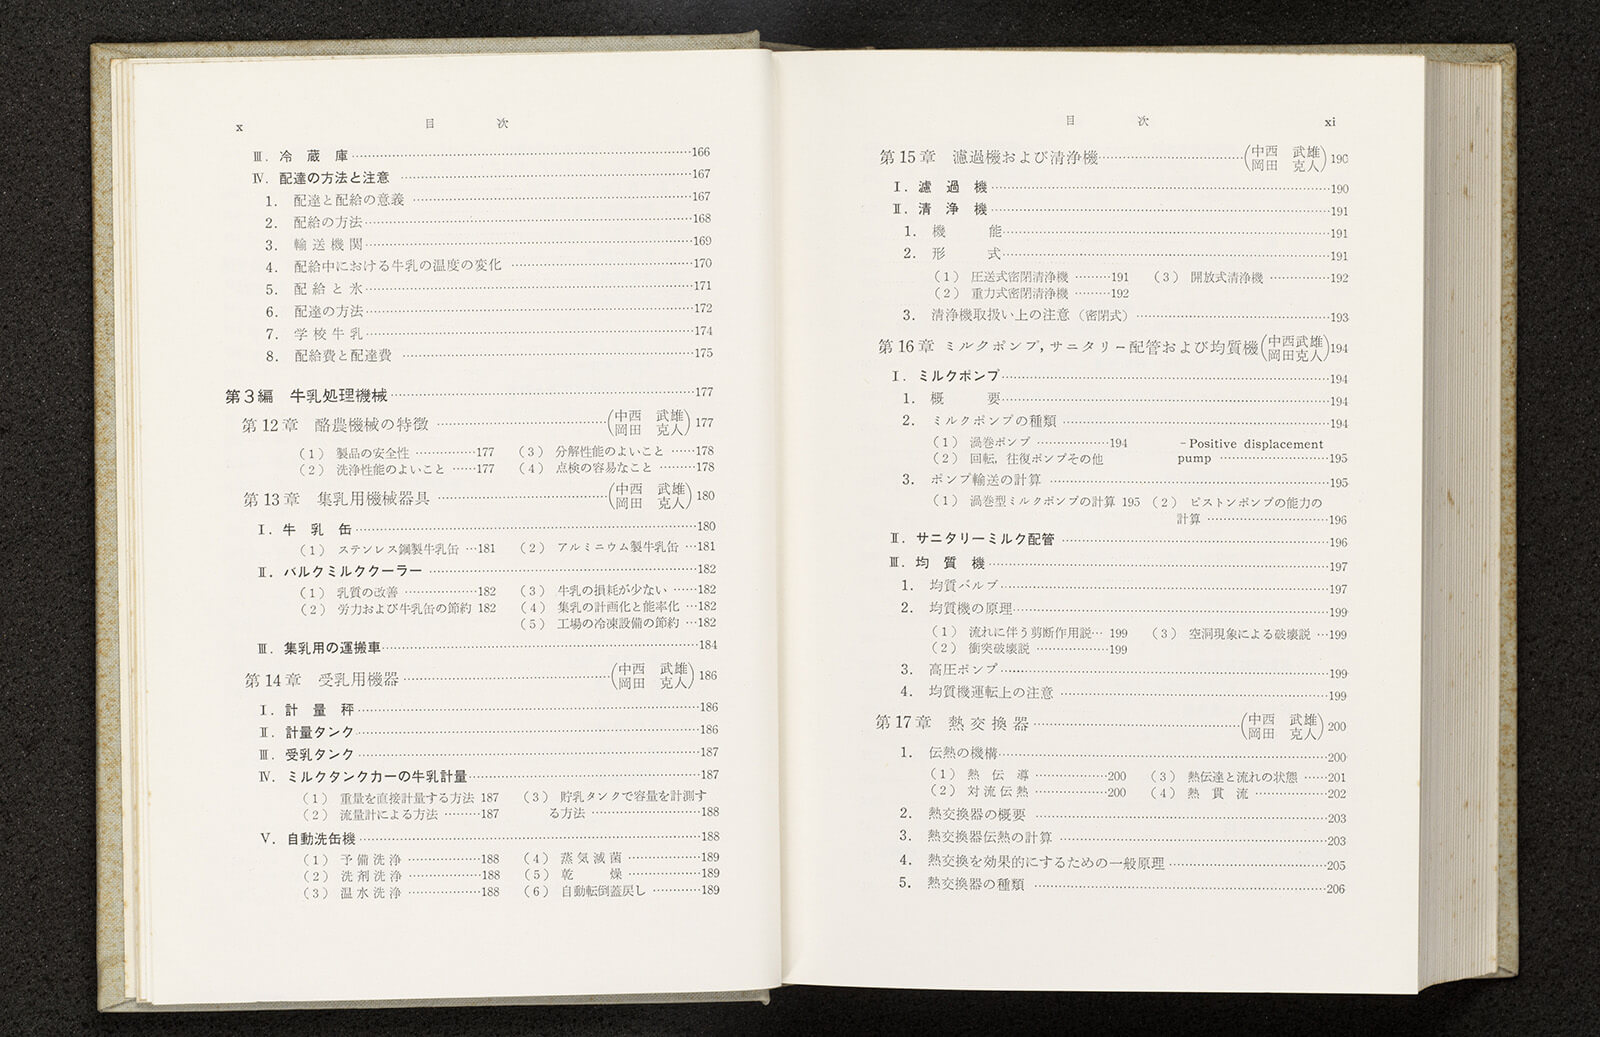 x 目次
Ⅲ．冷蔵庫……166
Ⅳ．配達の方法と注意……167
1．配達と配給の意義……167
2．配給の方法……168
3．輸送機関……169
4．配給中における牛乳の温度の変化……170
5．配給と氷……171
6．配達の方法……172
7．学校牛乳……174
8．配給費と配達費……175
第3編 牛乳処理機械……177
第12章 酪農機械の特徴……(中西 武雄 岡田 克人) 177
(1) 製品の安全性……177 (3) 分解性能のよいこと……178
(2) 洗浄性能のよいこと……177 (4) 点検の容易なこと……178
第13章 集乳用機械器具……(中西 武雄 岡田 克人) 180
Ⅰ．牛乳缶……180
(1) ステンレス鋼製牛乳缶…181 (2) アルミニウム製牛乳缶…181
Ⅱ．バルクミルククーラー……182
(1) 乳質の改善……182 (3) 牛乳の損耗が少ない……182
(2) 労力および牛乳缶の節約 182 (4) 集乳の計画化と能率化…182
(5) 工場の冷凍設備の節約…182
Ⅲ．集乳用の運搬車……184
第14章 受乳用機器……(中西 武雄 岡田 克人) 186
Ⅰ．計量秤……186
Ⅱ．計量タンク……186
Ⅲ．受乳タンク……187
Ⅳ．ミルクタンクカーの牛乳計量……187
(1) 重量を直接計量する方法 187 (3) 貯乳タンクで容量を計測す
(2) 流量計による方法……187 る方法……188
Ⅴ．自動洗缶機……188
(1) 予備洗浄……188 (4) 蒸気滅菌……189
(2) 洗剤洗浄……188 (5) 乾燥……189
(3) 温水洗浄……188 (6) 自動転倒蓋戻し……189
目次 xi
第15章 濾過機および清浄機……(中西 武雄 岡田 克人) 190
Ⅰ．濾過機……190
Ⅱ．清浄機……191
1．機能……191
2．形式……191
(1) 圧送式密閉清浄機……191 (3) 開放式清浄機……192
(2) 重力式密閉清浄機……192
3．清浄機取扱い上の注意（密閉式）……193
第16章 ミルクポンプ，サニタリー配管および均質機(中西武雄 岡田克人)194
Ⅰ．ミルクポンプ……194
1．概要……194
2．ミルクポンプの種類……194
(1) 渦巻ポンプ……194 －Positive displacement
(2) 回転，往復ポンプその他 pump……195
3．ポンプ輸送の計算……195
(1) 渦巻型ミルクポンプの計算 195 (2) ピストンポンプの能力の
計算……196
Ⅱ．サニタリーミルク配管……196
Ⅲ．均質機……197
1．均質バルブ……197
2．均質機の原理……199
(1) 流れに伴う剪断作用説…199 (3) 空洞現象による破壊説…199
(2) 衝突破壊説……199
3．高圧ポンプ……199
4．均質機運転上の注意……199
第17章 熱交換器……(中西 武雄 岡田 克人) 200
1．伝熱の機構……200
(1) 熱伝導……200 (3) 熱伝達と流れの状態……201
(2) 対流伝熱……200 (4) 熱貫流……202
2．熱交換器の概要……203
3．熱交換器伝熱の計算……203
4．熱交換を効果的にするための一般原理……205
5．熱交換器の種類……206